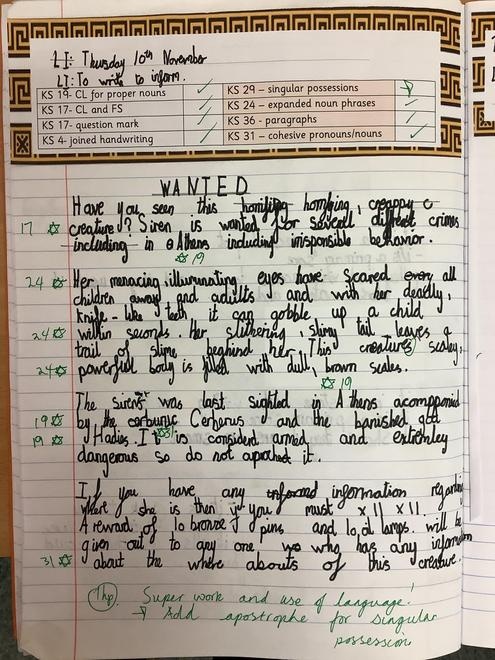 LI: Thursday 10th November
LI: To write to inform.
KS 19- CL for proper nouns ✓ KS 29 – singular possessions
KS 17- CL and FS ✓ KS 24 – expanded noun phrases ✓
KS 17- question mark ✓ KS 36 - paragraphs ✓
KS 4- joined handwriting ✓ KS 31 – cohesive pronouns/nouns ✓
WANTED
Have you seen this horrifing, creappy
17 creature? Siren is wanted for several different crimes
including in Athens including irisponsible behavior.
19
24 Her menacing, illumunating eyes have scared every all
children away and adults and with her deadly,
knife-like teeth it can gobble up a child
24 within seconds. Her slithering, slimy tail leaves a
trail of slime beghind her. This creatures scaley,
24 powerfull body is filled with dull, brown scales.
19
The Siren was last sighted in Athens acomponied
19 by the Cerberus and the banished god
19 Hadies. It 31 is consident armed and extremley
dangerous so do not aproched it.
If you have any information regarding
where she is then if you must x 11 x 11.
A reward of 10 bronze pins and 10 oil lamps. will be
given out to any one who has any information
31 about the where abouts of this creature.
Thp. Super work and use of language!
→ Add apostrophe for singular
possession.